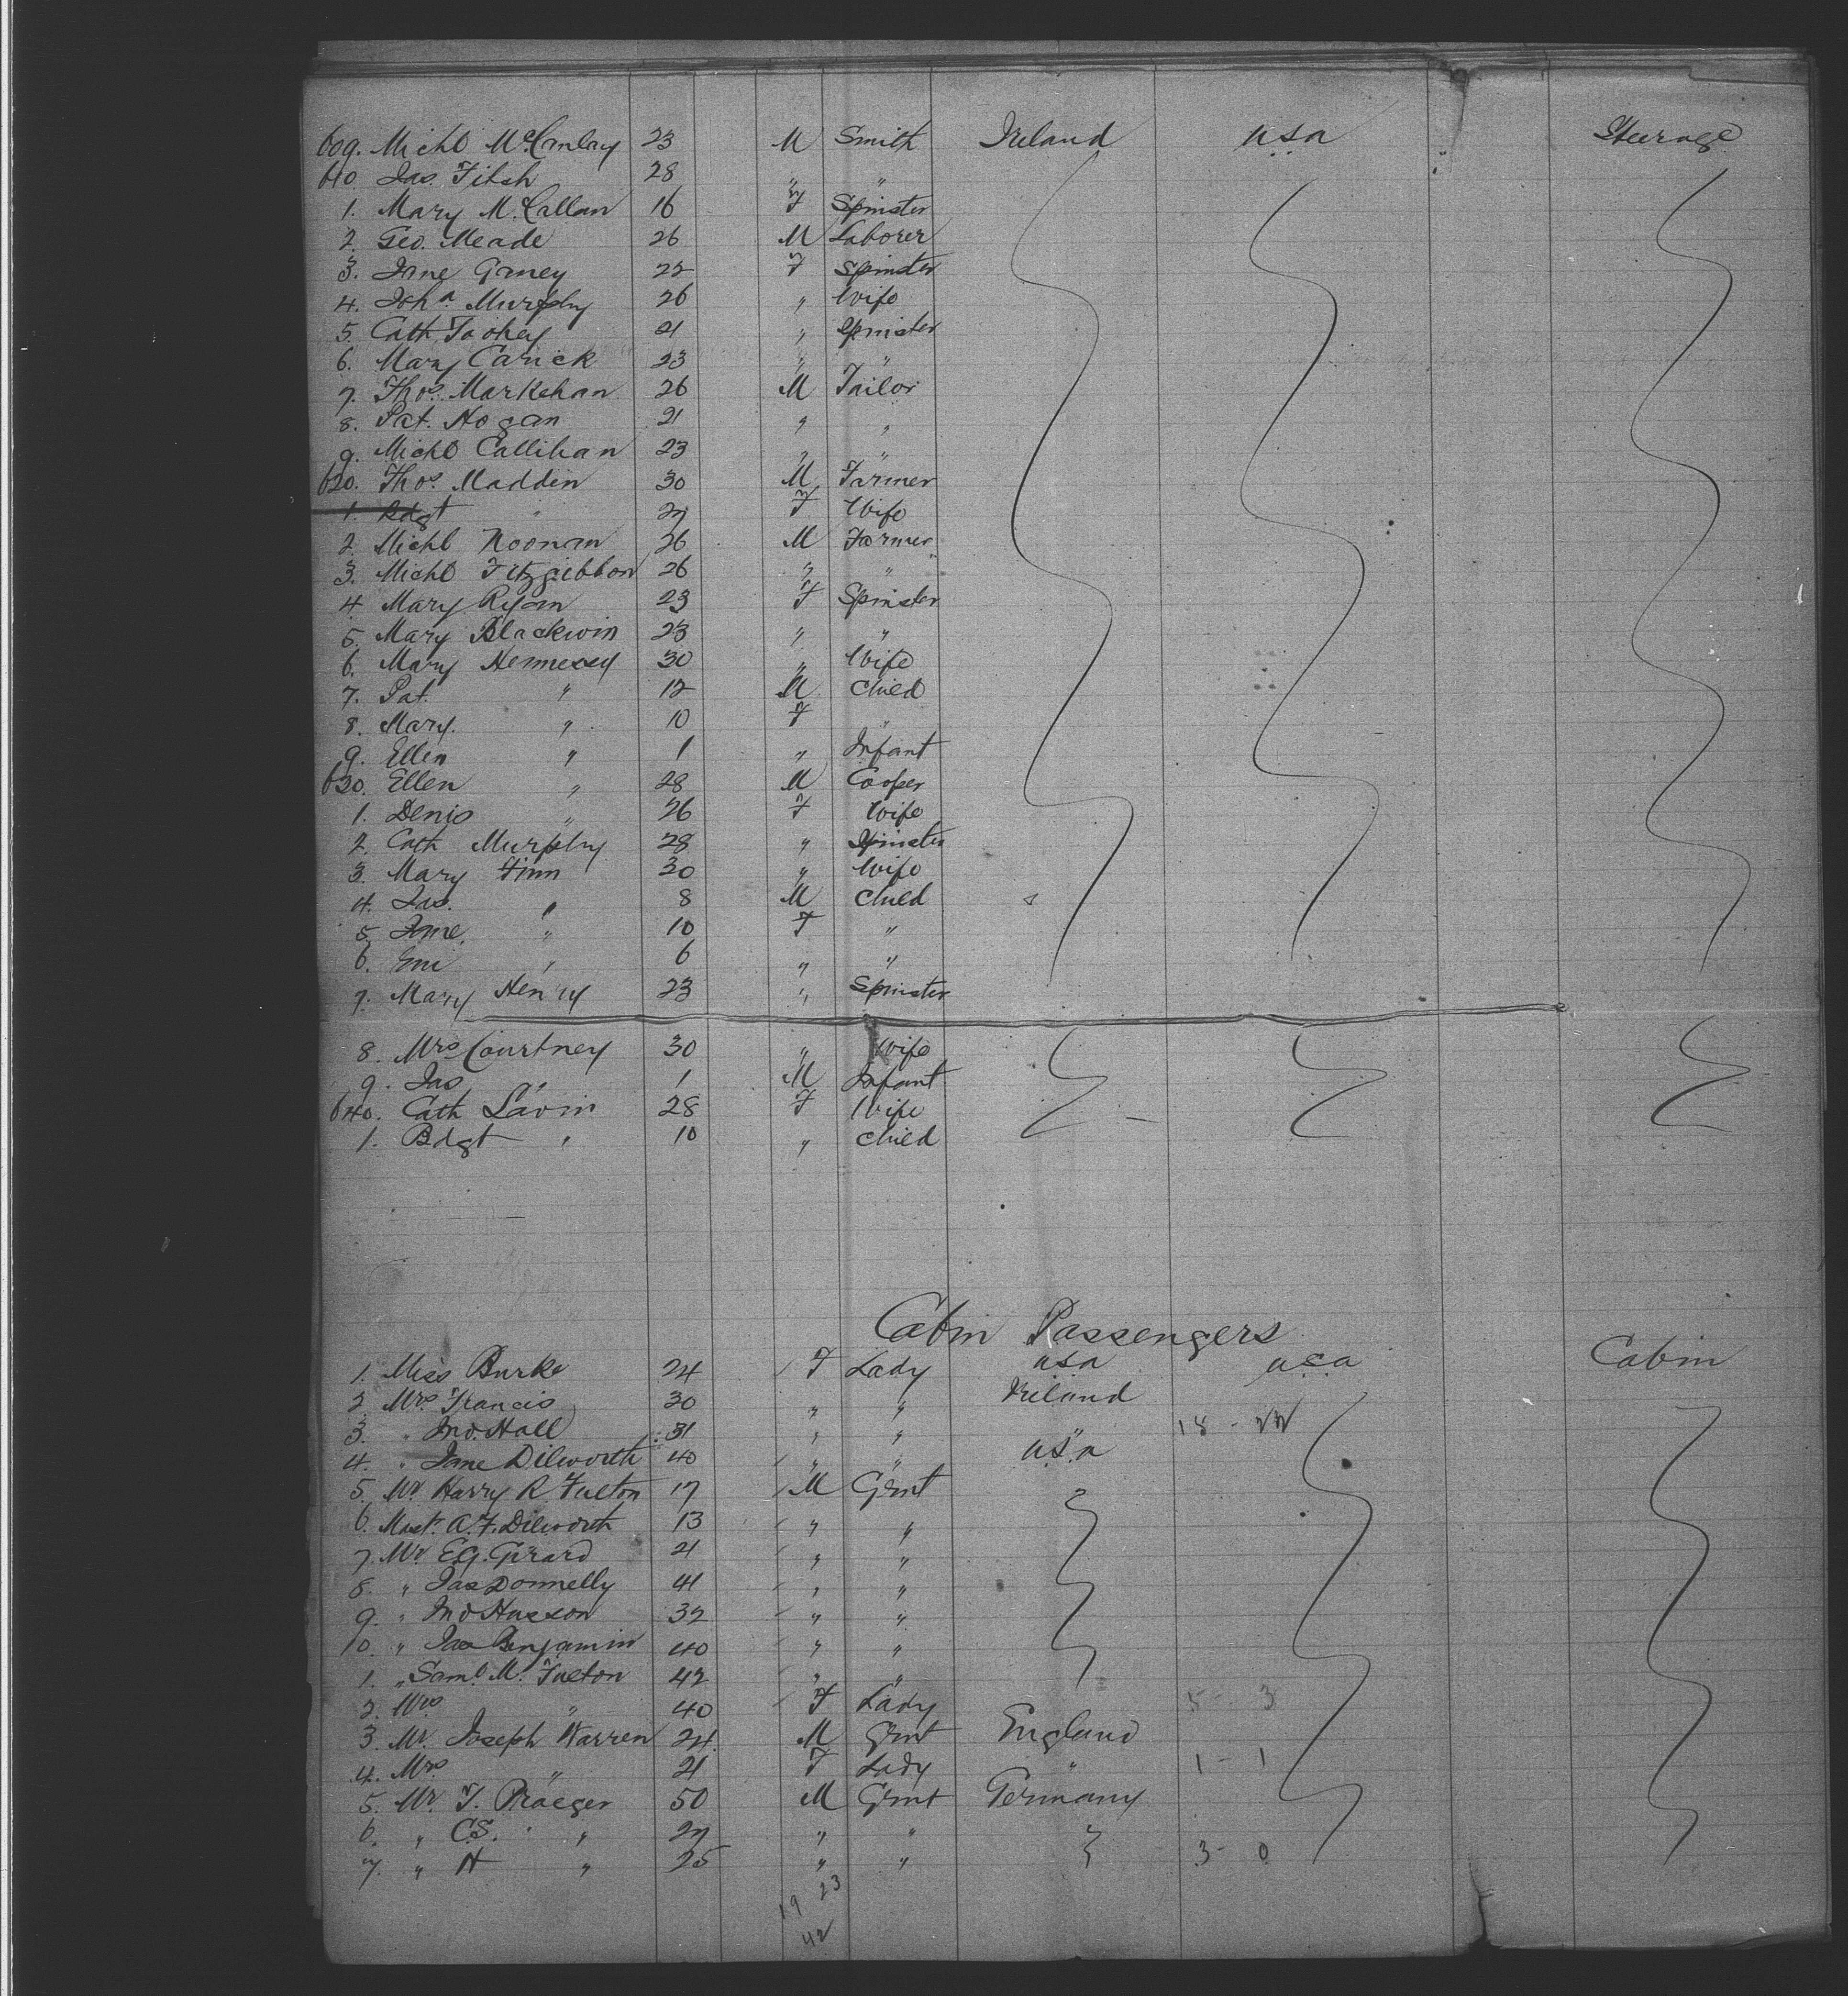 609. Michl McCanlay 23 M Smith Ireland U.S.A Steerage
610. Jas. Fitch 28 " "
1. Mary McCallan 16 F Spinster
2. Geo. Meade 26 M Laborer
3. Jane Ganey 22 F Spinster
4. Joha Murphy 26 " Wife
5. Cath Toohey 21 " Spinster
6. Mary Carick 23 " "
7. Thos. Markehan 26 M Tailor
8. Pat. Hogan 21 " "
9. Michl Callihan 23 " "
620. Thos. Madden 30 M Farmer
1. Bdgt " 27 F Wife
2. Michl Noonan 26 M Farmer
3. Michl Fitzgibbon 26 " "
4. Mary Ryan 23 F Spinster
5. Mary Blackwin 23 " "
6. Mary Hennessy 30 " Wife
7. Pat. " 12 M Child
8. Mary. " 10 F "
9. Ellen " 1 " Infant
630. Ellen " 28 M Cooper
1. Denis " 26 F Wife
2. Cath Murphy 28 " Spinster
3. Mary Finn 30 " Wife
4. Jas. " 8 M Child
5. Jane. " 10 F "
6. " 6 " "
7. Mary Henry 23 " Spinster
8. Mrs Courtney 30 " Wife
9. Jas " 1 M Infant
640. Cath Lavin 28 F Wife
1. Bdgt " 10 " Child
Cabin Passengers
1. Miss Burke 24 F Lady U.S.A U.S.A Cabin
2. Mrs Francis 30 " " Ireland
3. " Jno. Hall 31 " " " 18 -
4. " Jane Dilworth 40 " " U.S.A
5. Mr Harry R. Fulton 17 M Gent "
6. Mast. A. F. Dilworth 13 " "
7. Mr E.G. Girard 21 " "
8. " Jas Donnelly 41 " "
9. " Jno Husson 32 " "
10. " Jas Benjamin 40 " "
1. " Saml. M. Fulton 42 " "
2. Mrs " 40 F Lady 5 - 3
3. Mr. Joseph Warren 24 M Gent England
4. Mrs " 21 F Lady " 1 - 1
5. Mr. F. Praeger 50 M Gent Germany
6. " C.S. " 27 " "
7. " H " 25 " " 3 - 0
19 23
42